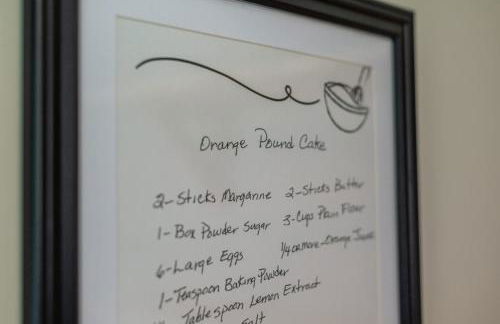 Orange Pound Cake
2-Sticks Margarine 2-Sticks Butter
1-Box Powder Sugar 3-Cups Plain Flour
6-Large Eggs 1/4 or more-Orange Juice
1-Teaspoon Baking Powder
Tablespoon Lemon Extract
Salt